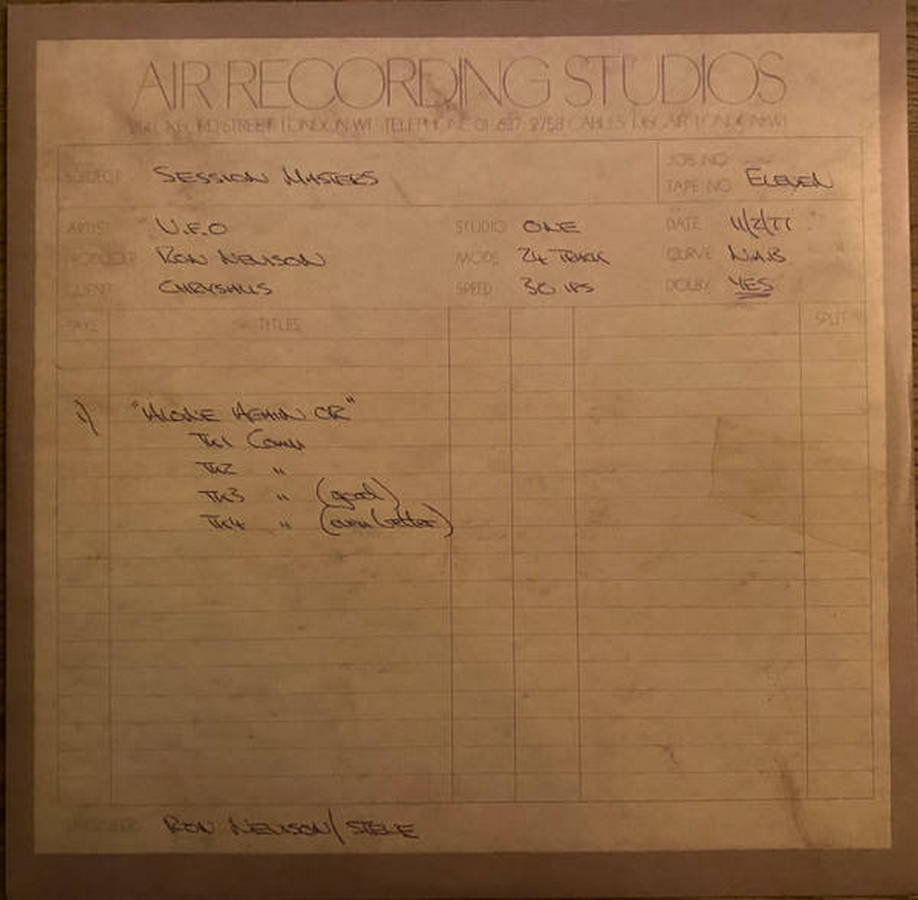 AIR RECORDING STUDIOS
214 OXFORD STREET LONDON W1 TELEPHONE 01-637-2758 CABLES LONDON W1
SUBJECT SESSION MASTERS
JOB NO
TAPE NO ELEVEN
ARTIST U.F.O STUDIO ONE DATE 11/2/77
PRODUCER RON NEVISON MODE 24 TRACK CURVE N.A.B
CLIENT CHRYSALIS SPEED 30 IPS DOLBY YES
TAKE TITLES SPLIT
1) "ALONE AGAIN OR"
TK1 COMP
TK2 "
TK3 " (good)
TK4 " (even better)
RON NEVISON/STEVE